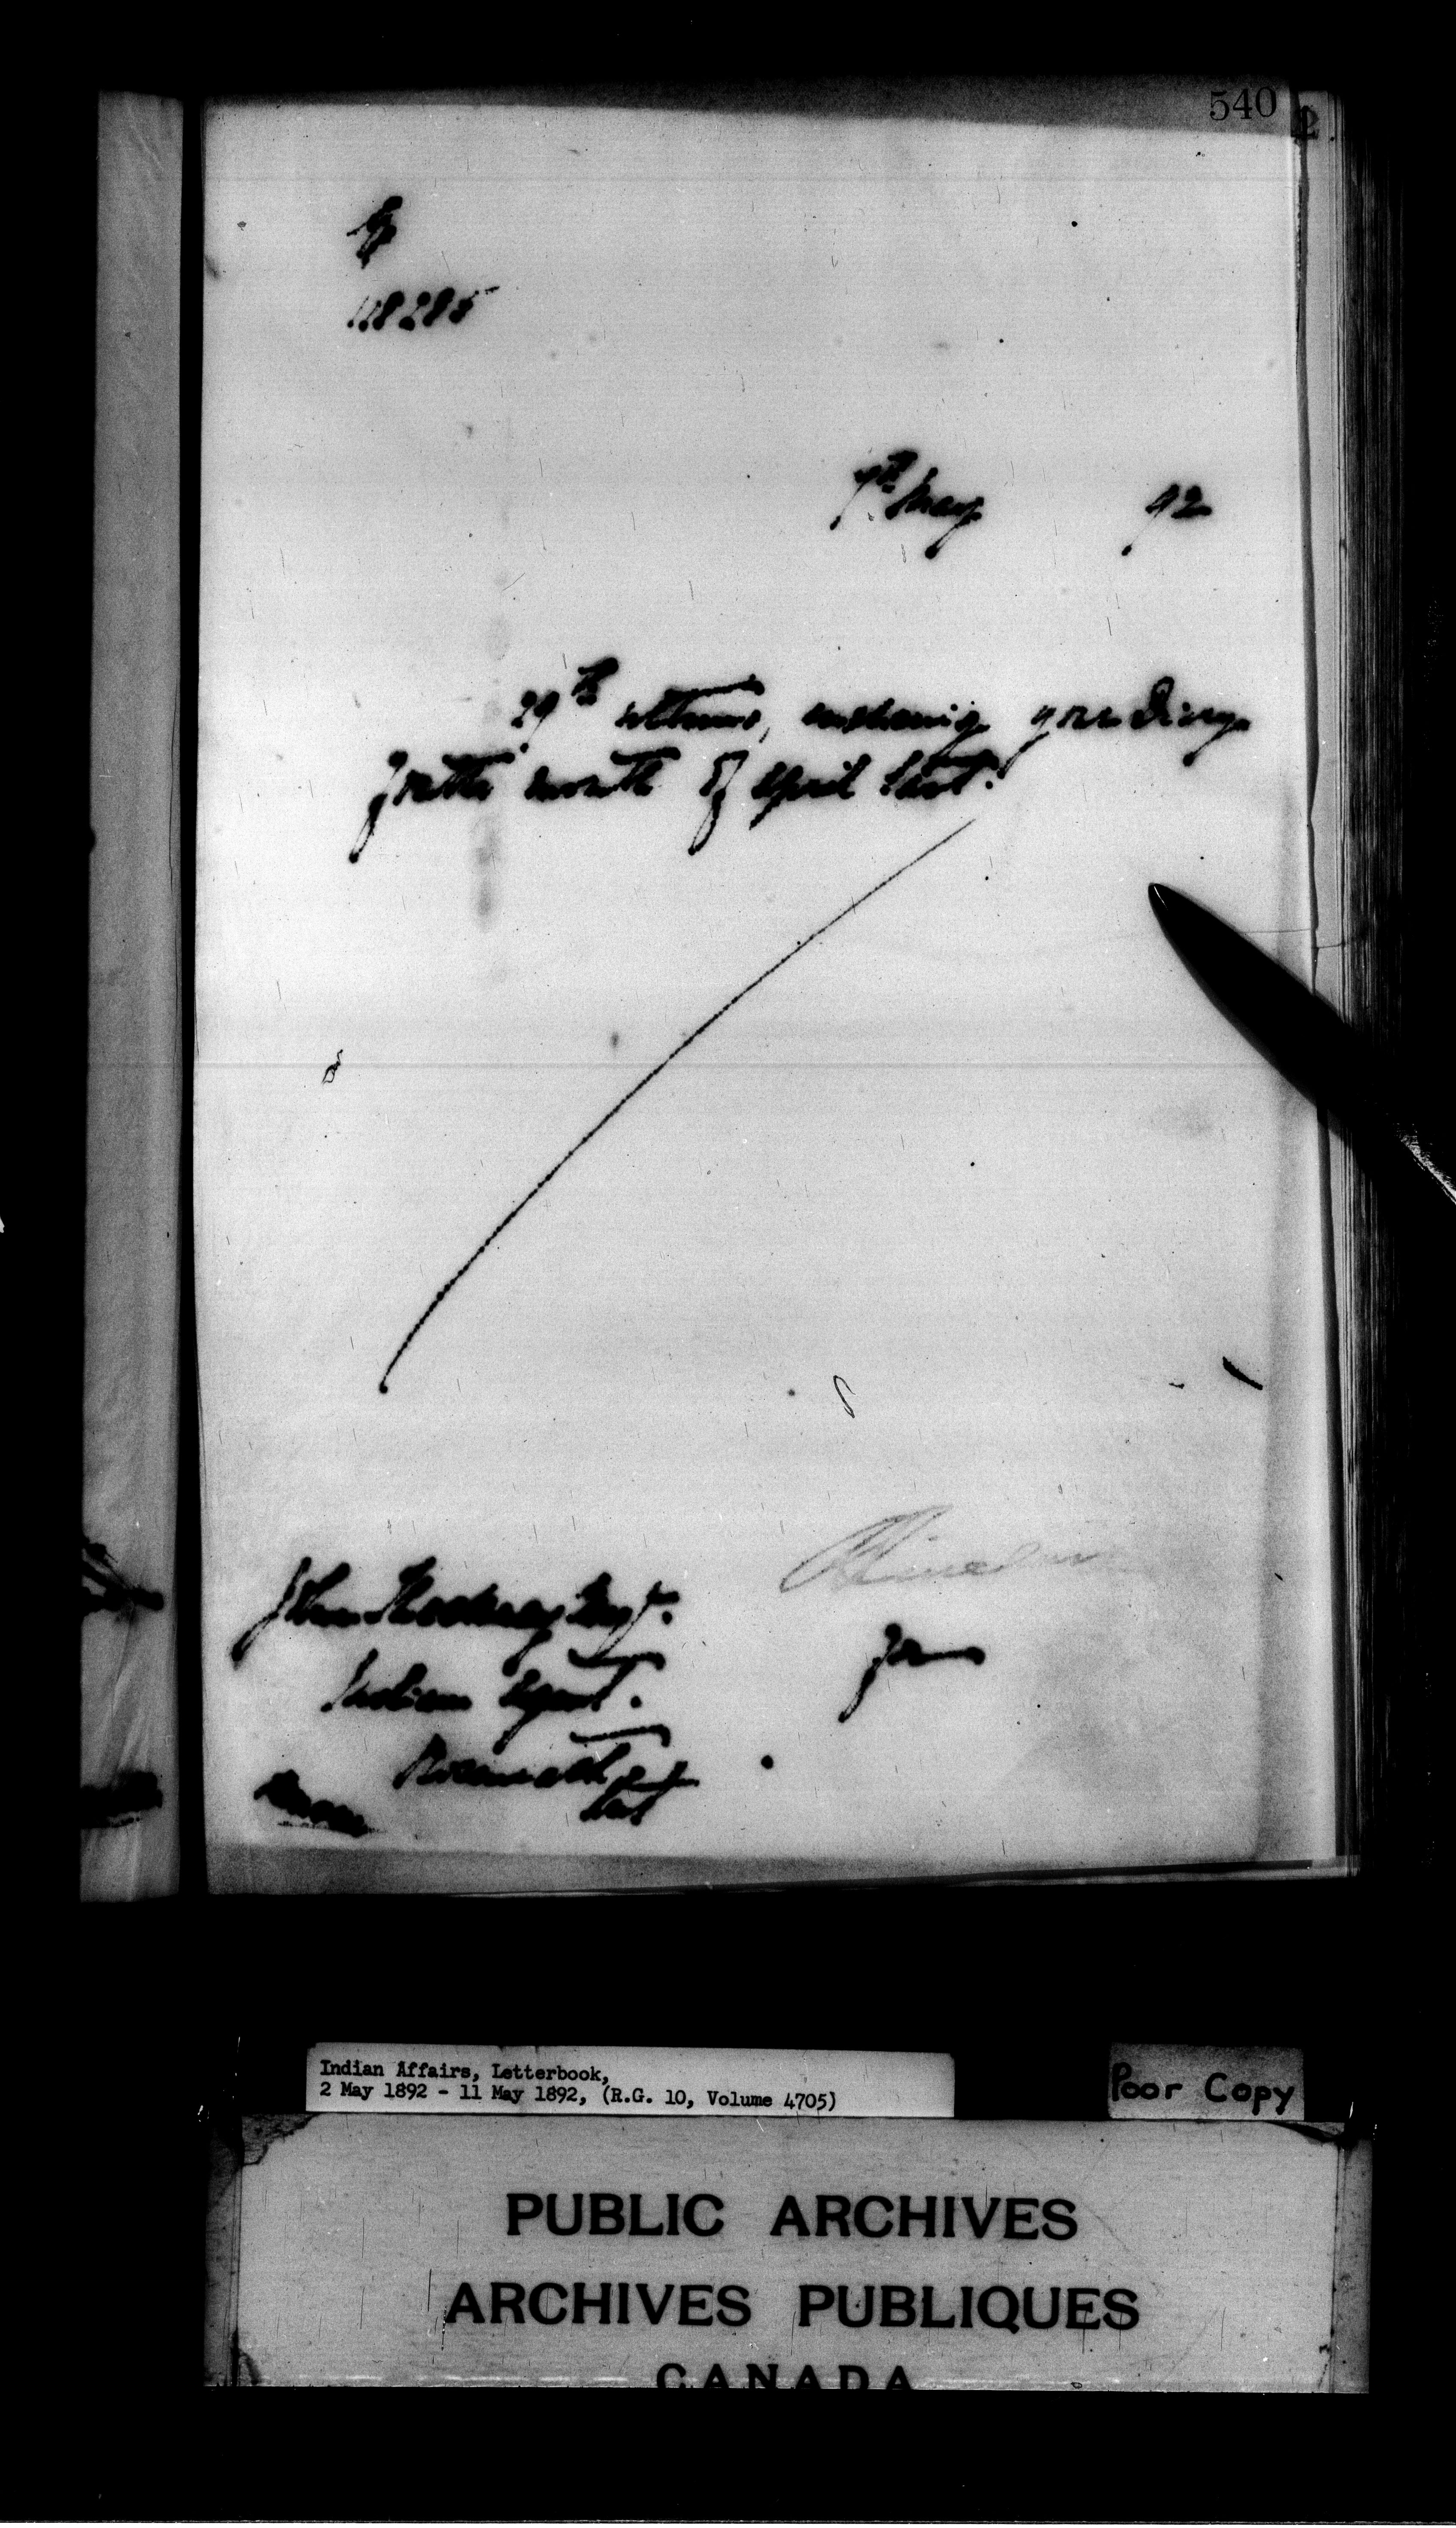 540
118285
7th May 92
29th ultimo, enclosing your Diary
for the month of April last.
John Thackeray Esqr.
Indian Agent.
for
Roseneath
Ont
Indian Affairs, Letterbook,
2 May 1892 - 11 May 1892, (R.G. 10, Volume 4705)
Poor Copy
PUBLIC ARCHIVES
ARCHIVES PUBLIQUES
CANADA